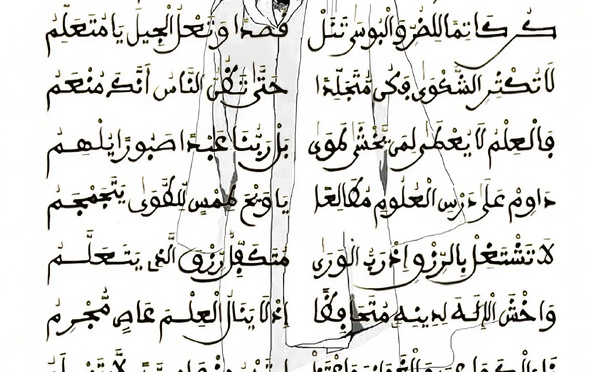 كُن كَاتِمًا لِلضُّرِّ وَالْبُوسِ تَنَلْ قَصْدًا وَتَعْلُ الْجِيلَ يَا مُتَعَلِّمُ
لَا تُكْثِرِ الشَّكْوَى وَكُن مُتَجَلِّدًا حَتَّى تَظُنَّ النَّاسُ أَنَّكَ مُنْعَمُ
فَالْعِلْمُ لَا يُعْطَى لِمَن يَخْشَى طَوَى بَلْ رَبُّنَا عَبْدًا صَبُورًا يُلْهِمُ
دَاوِمْ عَلَى دَرْسِ الْعُلُومِ مُطَالِعًا يَا وَيْحَ لِلطَّوَى يَتَجَمْجَمُ
لَا تَشْتَغِلْ بِالرِّزْقِ إِذْ رَبُّ الْوَرَى مُتَكَفِّلٌ رِزْقَ الَّذِي يَتَعَلَّمُ
وَاخْشَ الْإِلَٰهَ لِدِينِهِ مُتَحَافِظًا إِذْ لَا يَنَالُ الْعِلْمَ عَاصٍ مُجْرِمُ